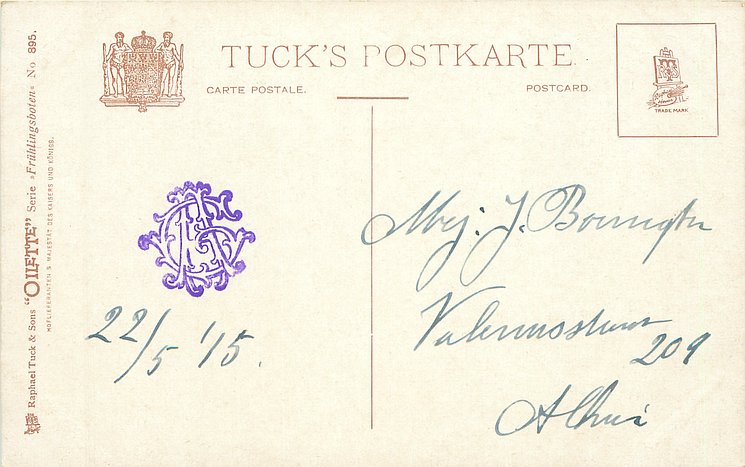 TUCK'S POSTKARTE.
CARTE POSTALE.
POSTCARD.
TRADE MARK
Raphael Tuck & Sons "OILETTE" Serie »Frühlingsboten« No 895.
HOFLIEFERANTEN S. MAJESTÄT DES KAISERS UND KÖNIGS.
22/5 '15.
Mej: J.
209